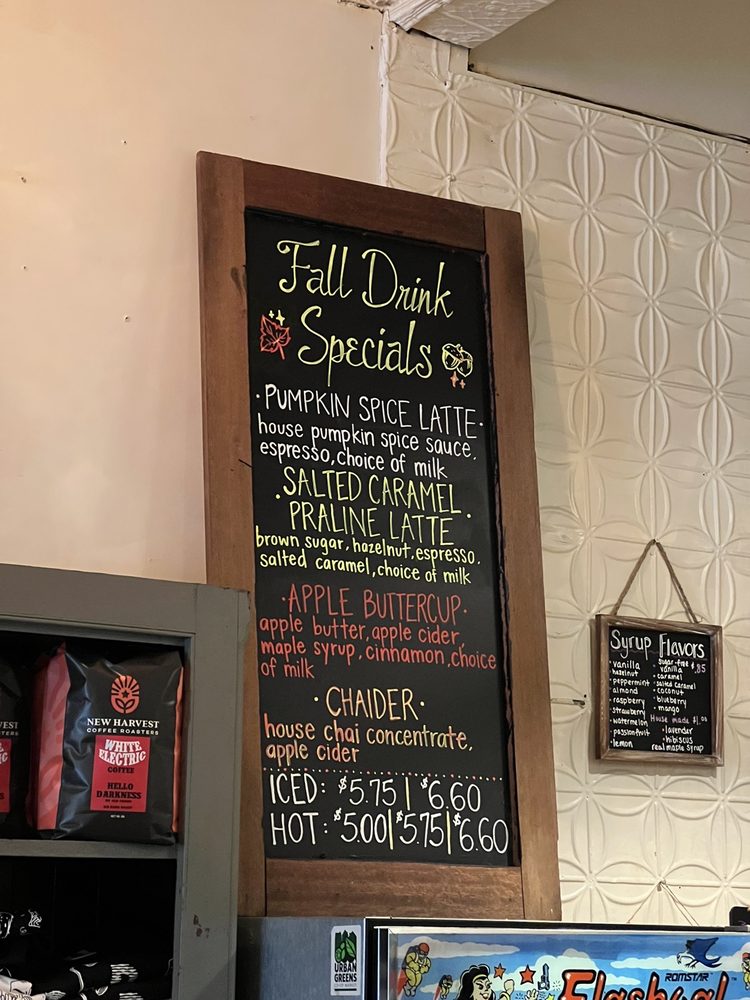 Fall Drink
Specials
·PUMPKIN SPICE LATTE·
house pumpkin spice sauce,
espresso, choice of milk
·SALTED CARAMEL
PRALINE LATTE·
brown sugar, hazelnut, espresso,
salted caramel, choice of milk
·APPLE BUTTERCUP·
apple butter, apple cider,
maple syrup, cinnamon, choice
of milk
·CHAIDER·
house chai concentrate,
apple cider
ICED: $5.75 | $6.60
HOT: $5.00 | $5.75 | $6.60
Syrup Flavors
·vanilla
hazelnut
·peppermint
·almond
·raspberry
strawberry
watermelon
·passionfruit
·lemon
sugar-free
vanilla
$.85
·caramel
·salted caramel
·coconut
·blueberry
·mango
House made $1.00
·lavender
·hibiscus
real maple syrup
NEW HARVEST
COFFEE ROASTERS
WHITE
ELECTRIC
COFFEE
HELLO
DARKNESS
URBAN
GREENS
ROMSTAR